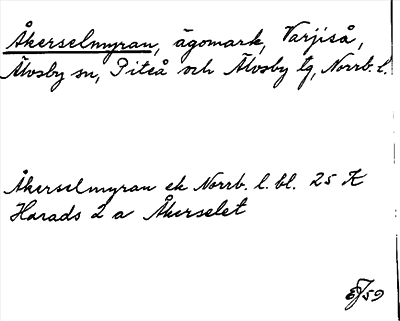 Åkerselmyran, ägomark, Varjiså,
Älvsby sn, Piteå och Älvsby tg, Norrb. l.
Åkerselmyran ek Norrb. l. bl. 25 K
Harads 2 a Åkerselet
59